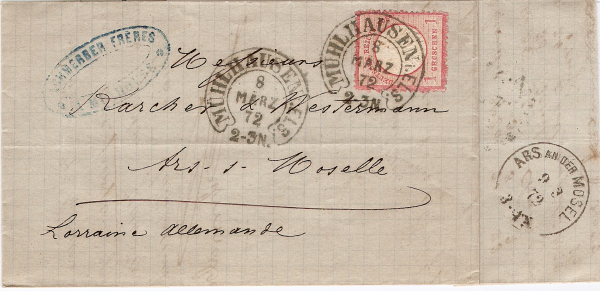 FRÈRES
MÜHLHAUSEN i. ELS
8
MÄRZ
72
2-3N.
1 GROSCHEN 1
MÜHLHAUSEN i. ELS
8
MÄRZ
72
2-3N.
Messieurs
Karcher & Westermann
Ars-s-Moselle
Lorraine Allemande
ARS AN DER MOSEL
9 3
72